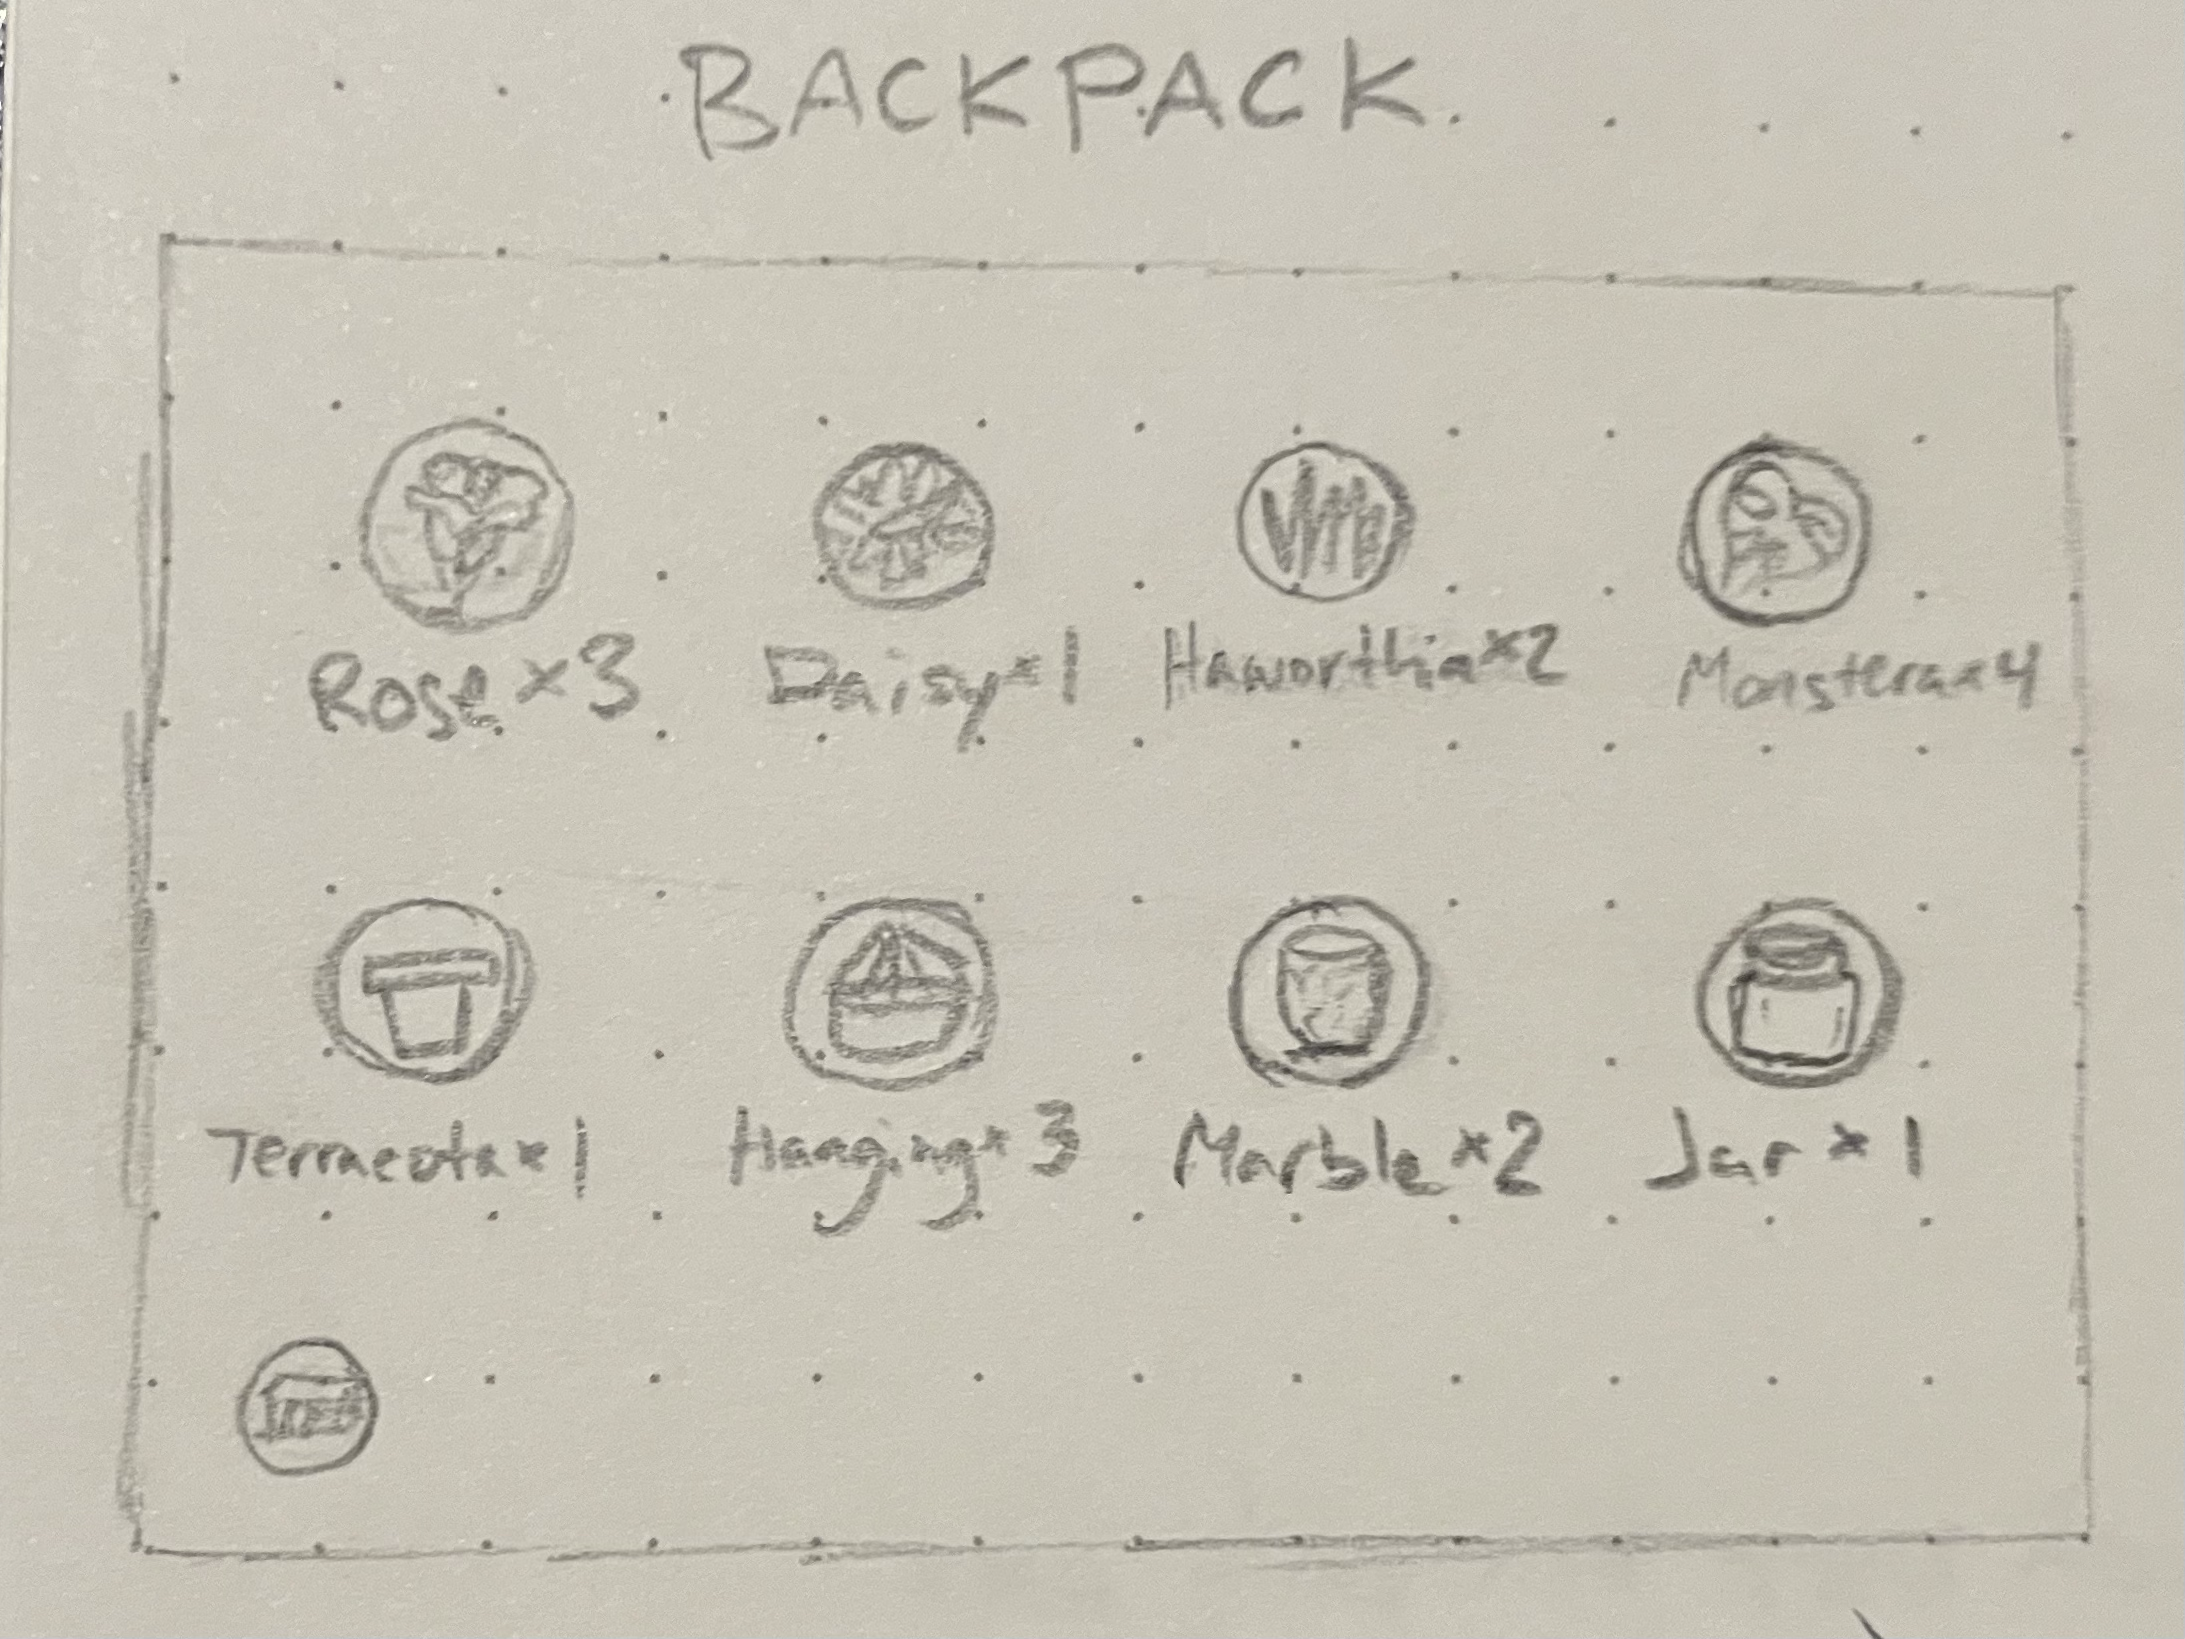 BACKPACK
Rose x 3 Daisy x 1 Haworthia x 2 Monstera x 4
Terracota x 1 Hanging x 3 Marble x 2 Jar x 1